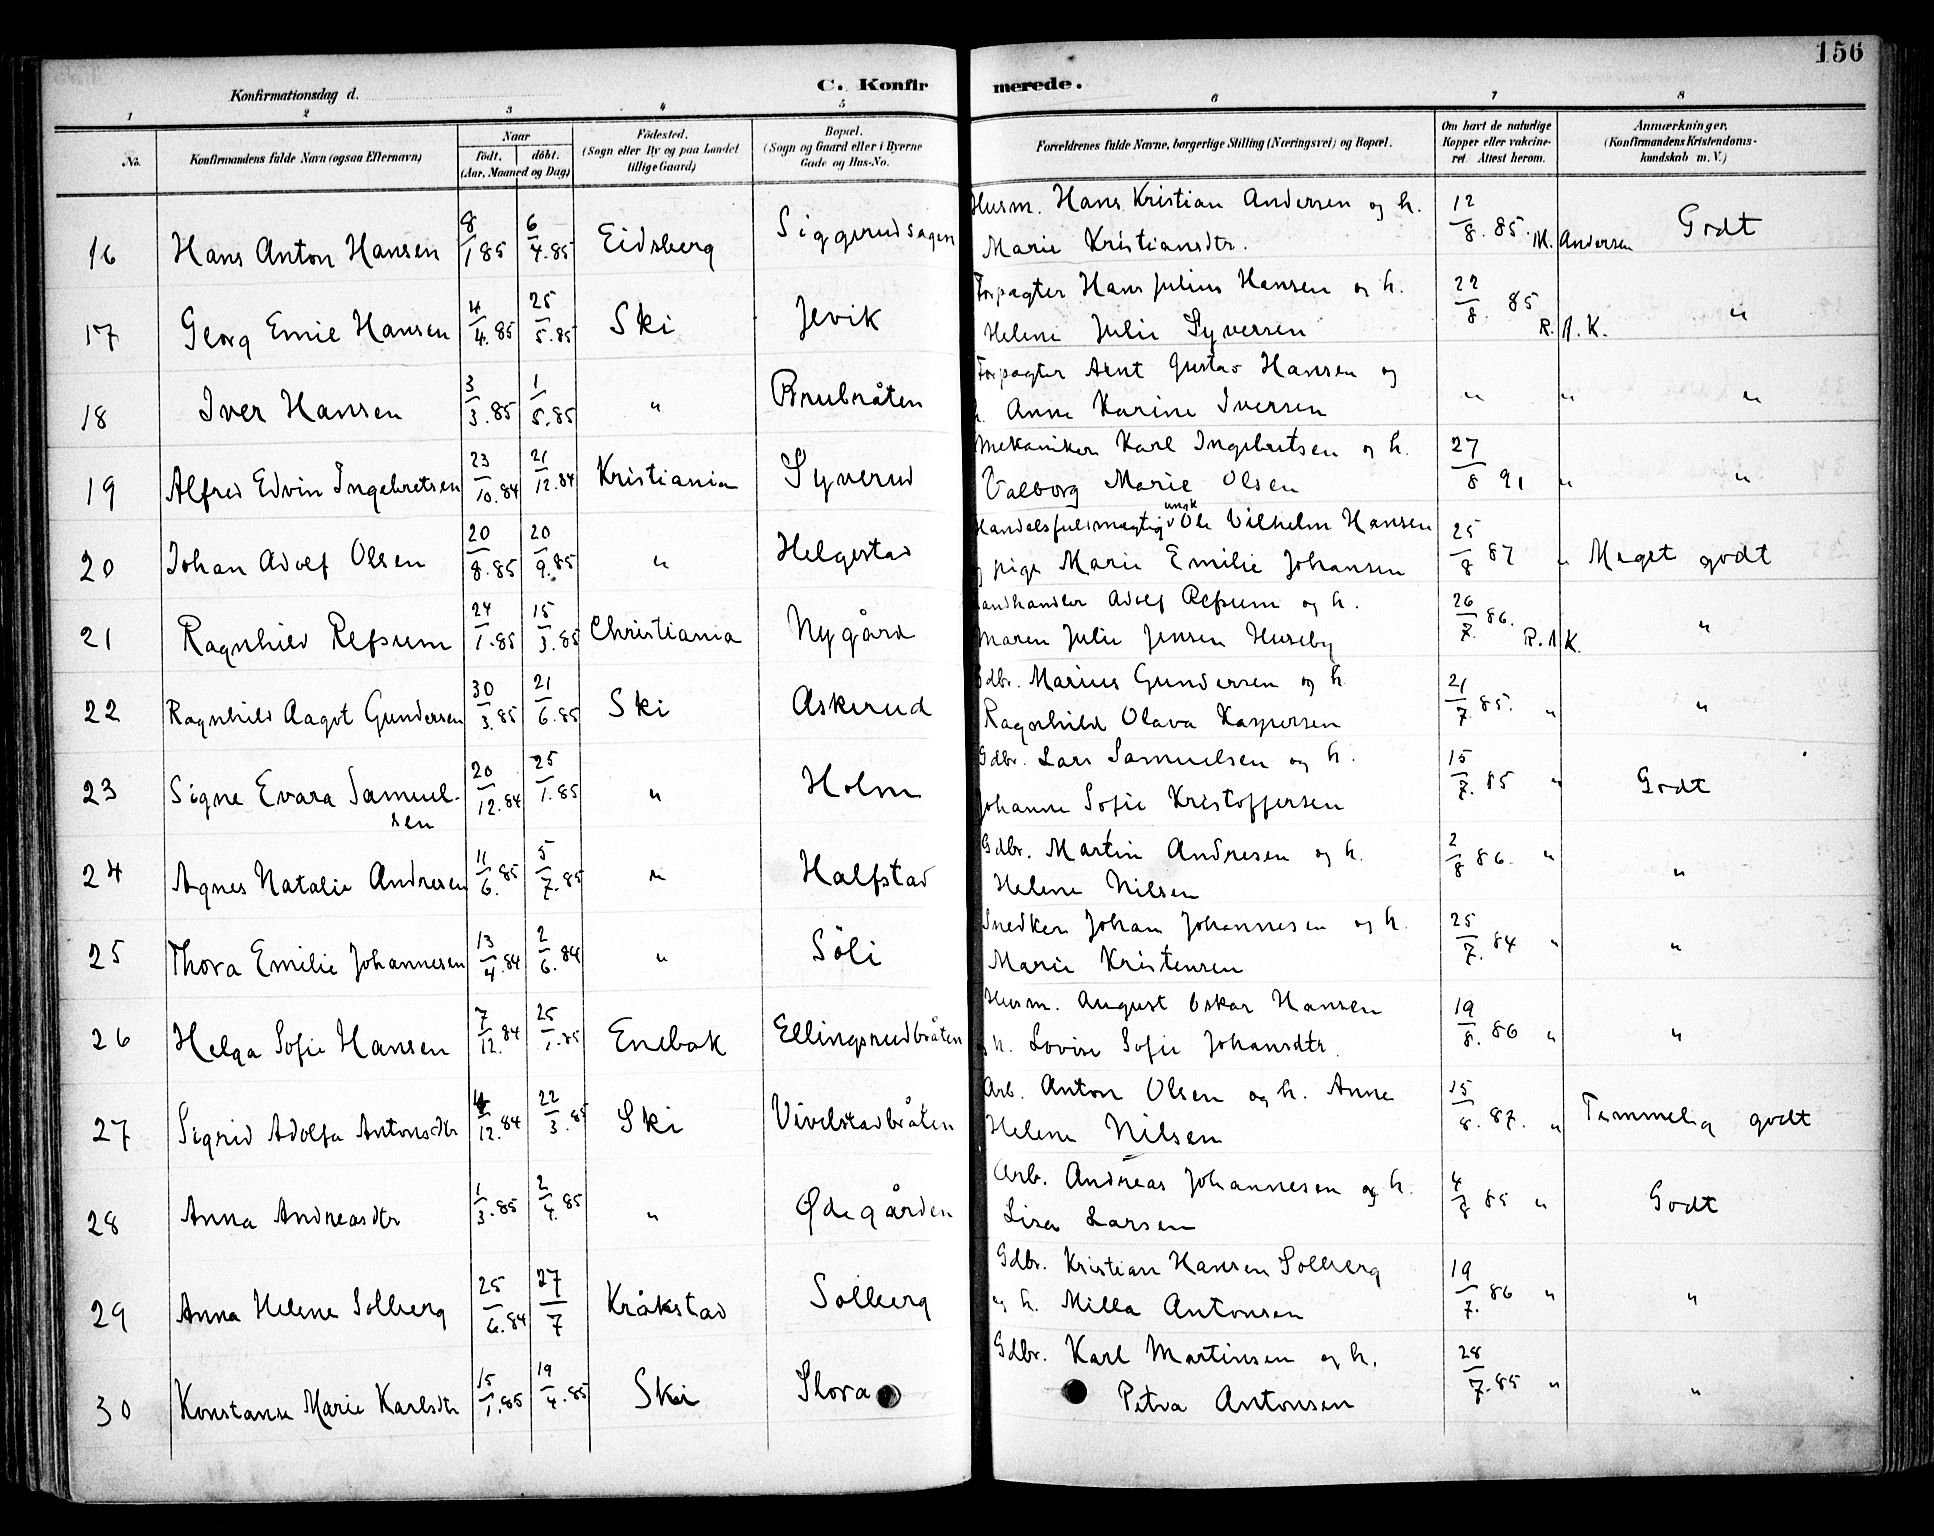 156
Konfirmationsdag d.
C. Konfir merede.
1 2 3 4 5 6 7 8
No. Konfirmandens fulde Navn (ogsaa Efternavn) Naar født, døbt. (Aar, Maaned og Dag) Fødested. (Sogn eller By og paa Landet tillige Gaard) Bopæl. (Sogn og Gaard eller i Byerne Gade og Hus-No. Forældrenes fulde Navne, borgerlige Stilling (Næringsvei) og Bopæl. Om havt de naturlige Kopper eller vakcineret. Attest herom. Anmærkninger. (Konfirmandens Kristendomskundskab m. V.)
16 Hans Anton Hansen 8/1 85 6/4.85 Eidsberg Siggerudsagen Husm. Hans Kristian Andersen og h. 12/8.85. M. Andersen Godt
Marie Kristiansdtr.
17 Georg Emil Hansen 4/4.85 25/5.85 Ski Jevik Forpagter Hans Julius Hansen og h. 22/8. 85 R. A. K. "
Helene Julie Syversen
18 Iver Hansen 3/3.85 1/5.85 " Brubråten Forpagter Arnt Gustav Hansen og " " "
h. Anne Karine Iversen
19 Alfred Edvin Ingebretsen 23/10.84 21/12.84 Kristiania Syverud Mekaniker Karl Ingebretsen og h. 27/8 91 " "
Valborg Marie Olsen
20 Johan Adolf Olsen 20/8.85 20/9.85 " Helgestad Handelsfuldmægtig ungk Ole Vilhelm Hansen 25/8 87 " Meget godt
pige Marie Emilie Johansen
21 Ragnhild Refsum 24/1.85 15/3.85 Christiania Nygård Landhandler Adolf Refsum og h. 26/7. 86. R. A. K. "
Maren Julie Jensen Huseby
22 Ragnhild Aagot Gundersen 30/3.85 21/6.85 Ski Askerud Gdbr. Marius Gundersen og h 21/7 85. " "
Ragnhild Olava Kaspersen
23 Signe Evara Samuelsen 20/12.84 25/1.85 " Holm Gdbr. Lars Samuelsen og h. 15/7. 85 " Godt
Johanne Sofie Kristoffersen
24 Agnes Natalie Andresen 11/6. 85 5/7.85 " Halfstad Gdbr. Martin Andresen og h. 2/8 86. " "
Helene Nilsen
25 Thora Emilie Johannesen 13/4.84 2/6.84 " Søli Snedker Johan Johannesen og h. 25/7. 84 " "
Marie Kristensen
26 Helga Sofie Hansen 7/12. 84 25/1.85 Enebak Ellingsrudbråten Husm. August Oskar Hansen 19/8. 86 " "
h. Lovise Sofie Johansdtr.
27 Sigrid Adolfa Antonsdtr 12.84 22/3.85 Ski Vivelstadbråten Arb. Anton Olsen og h. Anne 15/8. 87. " Temmelig godt
Helene Nilsen
28 Anna Andreasdtr 1/3.85 2/4.85 " Ødegården Arb. Andreas Johannesen og h. 4/8 85 " Godt
Lisa Larsen
29 Anna Helene Solberg 25/6.84 27/7 Kråkstad Solberg Gdbr. Kristian Hansen Solberg 19/7. 86 " "
og h. Milla Antonsen
30 Konstanse Marie Karlsdtr 15/1.85 19/4.85 Ski Slora Gdbr. Karl Martinsen og h. 28/7.85 " "
Petra Antonsen